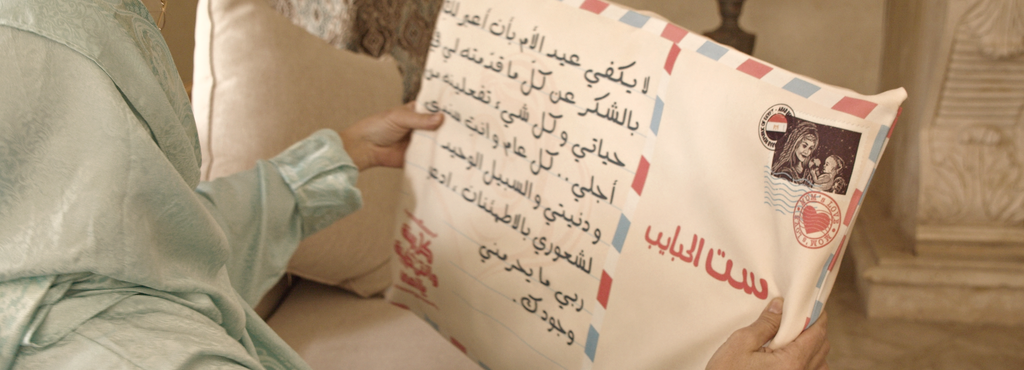 لا يكفي عيد الأم بأن أعبر لك
بالشكر عن كل ما قدمته لي في
حياتي وكل شيء تفعلينه من
أجلي.. كل عام وانت سندي
ودنيتي والسبيل الوحيد
لشعوري بالاطمئنان، ادعي
ربي ما يحرمني
وجودك.
ست الحبايب